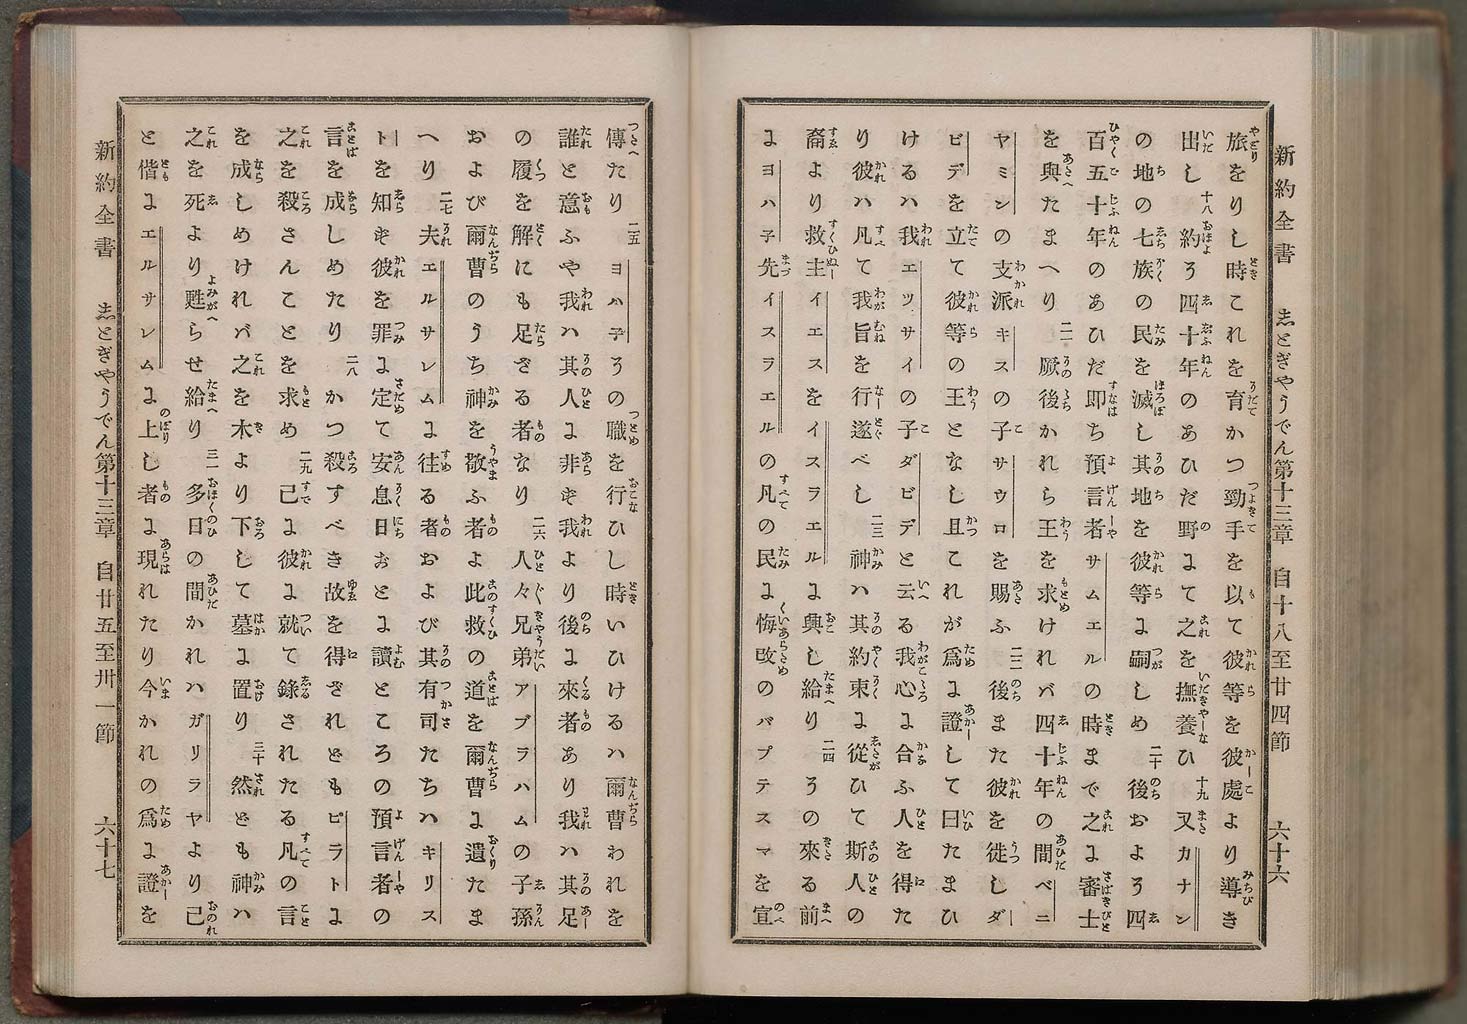 新約全書　志とぎやうでん第十三章　自十八至廿四節　六十六
旅をりし時これを育かつ勁手を以て彼等を彼處より導き
出し 十八 約ろ四十年のあひだ野にて之を撫養ひ 十九 又カナン
の地の七族の民を滅し其地を彼等に嗣しめ 二十 後およろ四
百五十年のあひだ即ち預言者サムエルの時まで之に審士
を與たまへり 二一 厥後かれら王を求けれバ四十年の間ベニ
ヤミンの支派キスの子サウロを賜ふ 二二 後また彼を徙しダ
ビデを立て彼等の王となし且これが爲に證して曰たまひ
けるハ我エツサイの子ダビデと云る我心に合ふ人を得た
り彼ハ凡て我旨を行遂べし 二三 神ハ其約束に從ひて斯人の
裔より救主イエスをイスラエルに興し給り 二四 うの來る前
にヨハ子先イスラエルの凡の民に悔改のバプテスマを宣
傳たり 二五 ヨハ子うの職を行ひし時いひけるハ爾曹われを
誰と意ふや我ハ其人に非ず我より後に來者あり我ハ其足
の履を解にも足ざる者なり 二六 人々兄弟アブラハムの子孫
および爾曹のうち神を敬ふ者よ此救の道を爾曹に遺たま
へり 二七 夫エルサレムに往る者および其有司たちハキリス
トを知ず彼を罪に定て安息日おとに讀ところの預言者の
言を成しめたり 二八 かつ殺すべき故を得ざれどもピラトに
之を殺さんことを求め 二九 己に彼に就て錄されたる凡の言
を成しめけれバ之を木より下して墓に置り 三十 然ども神ハ
之を死より甦らせ給り 三一 多日の間かれハガリラヤより己
と偕にエルサレムに上し者に現れたり今かれの爲に證を
新約全書　志とぎやうでん第十三章　自廿五至卅一節　六十七